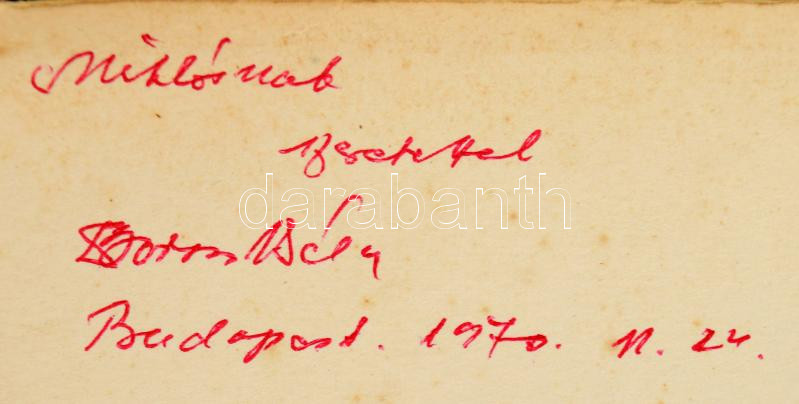 Miklósnak
szeretettel
darabanth
Boros Béla
Budapest. 1970. II. 24.